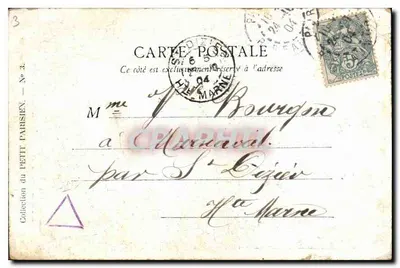 3
CARTE POSTALE
Ce côté est exclusivement réservé à l'adresse
ST DIZIER
04
Hte MARNE
Mme Vve Bourgon
à Marnaval
par St Dizier
Hte Marne
Collection du PETIT PARISIEN. — No 3.